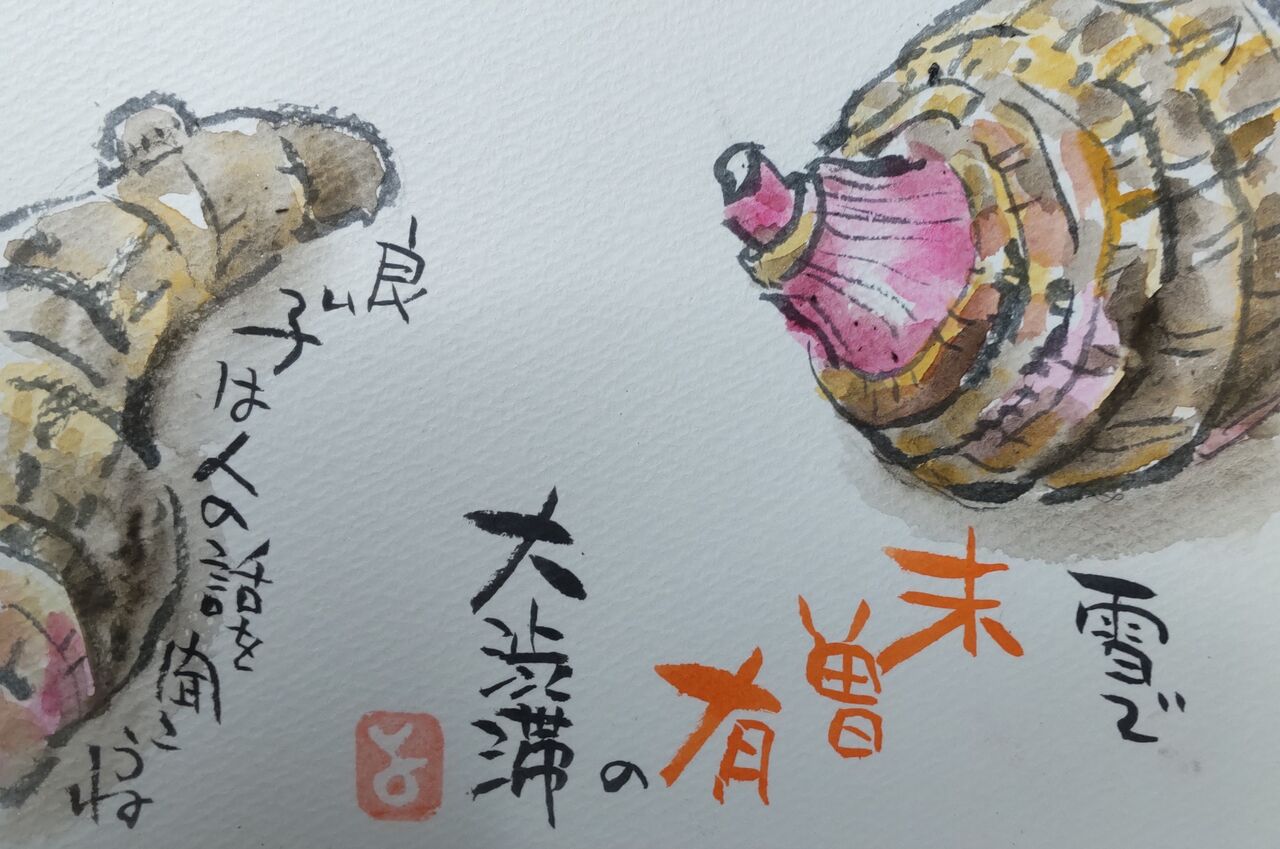 雪で
未曽有の
大渋滞
良い子は人の話を聞こうね